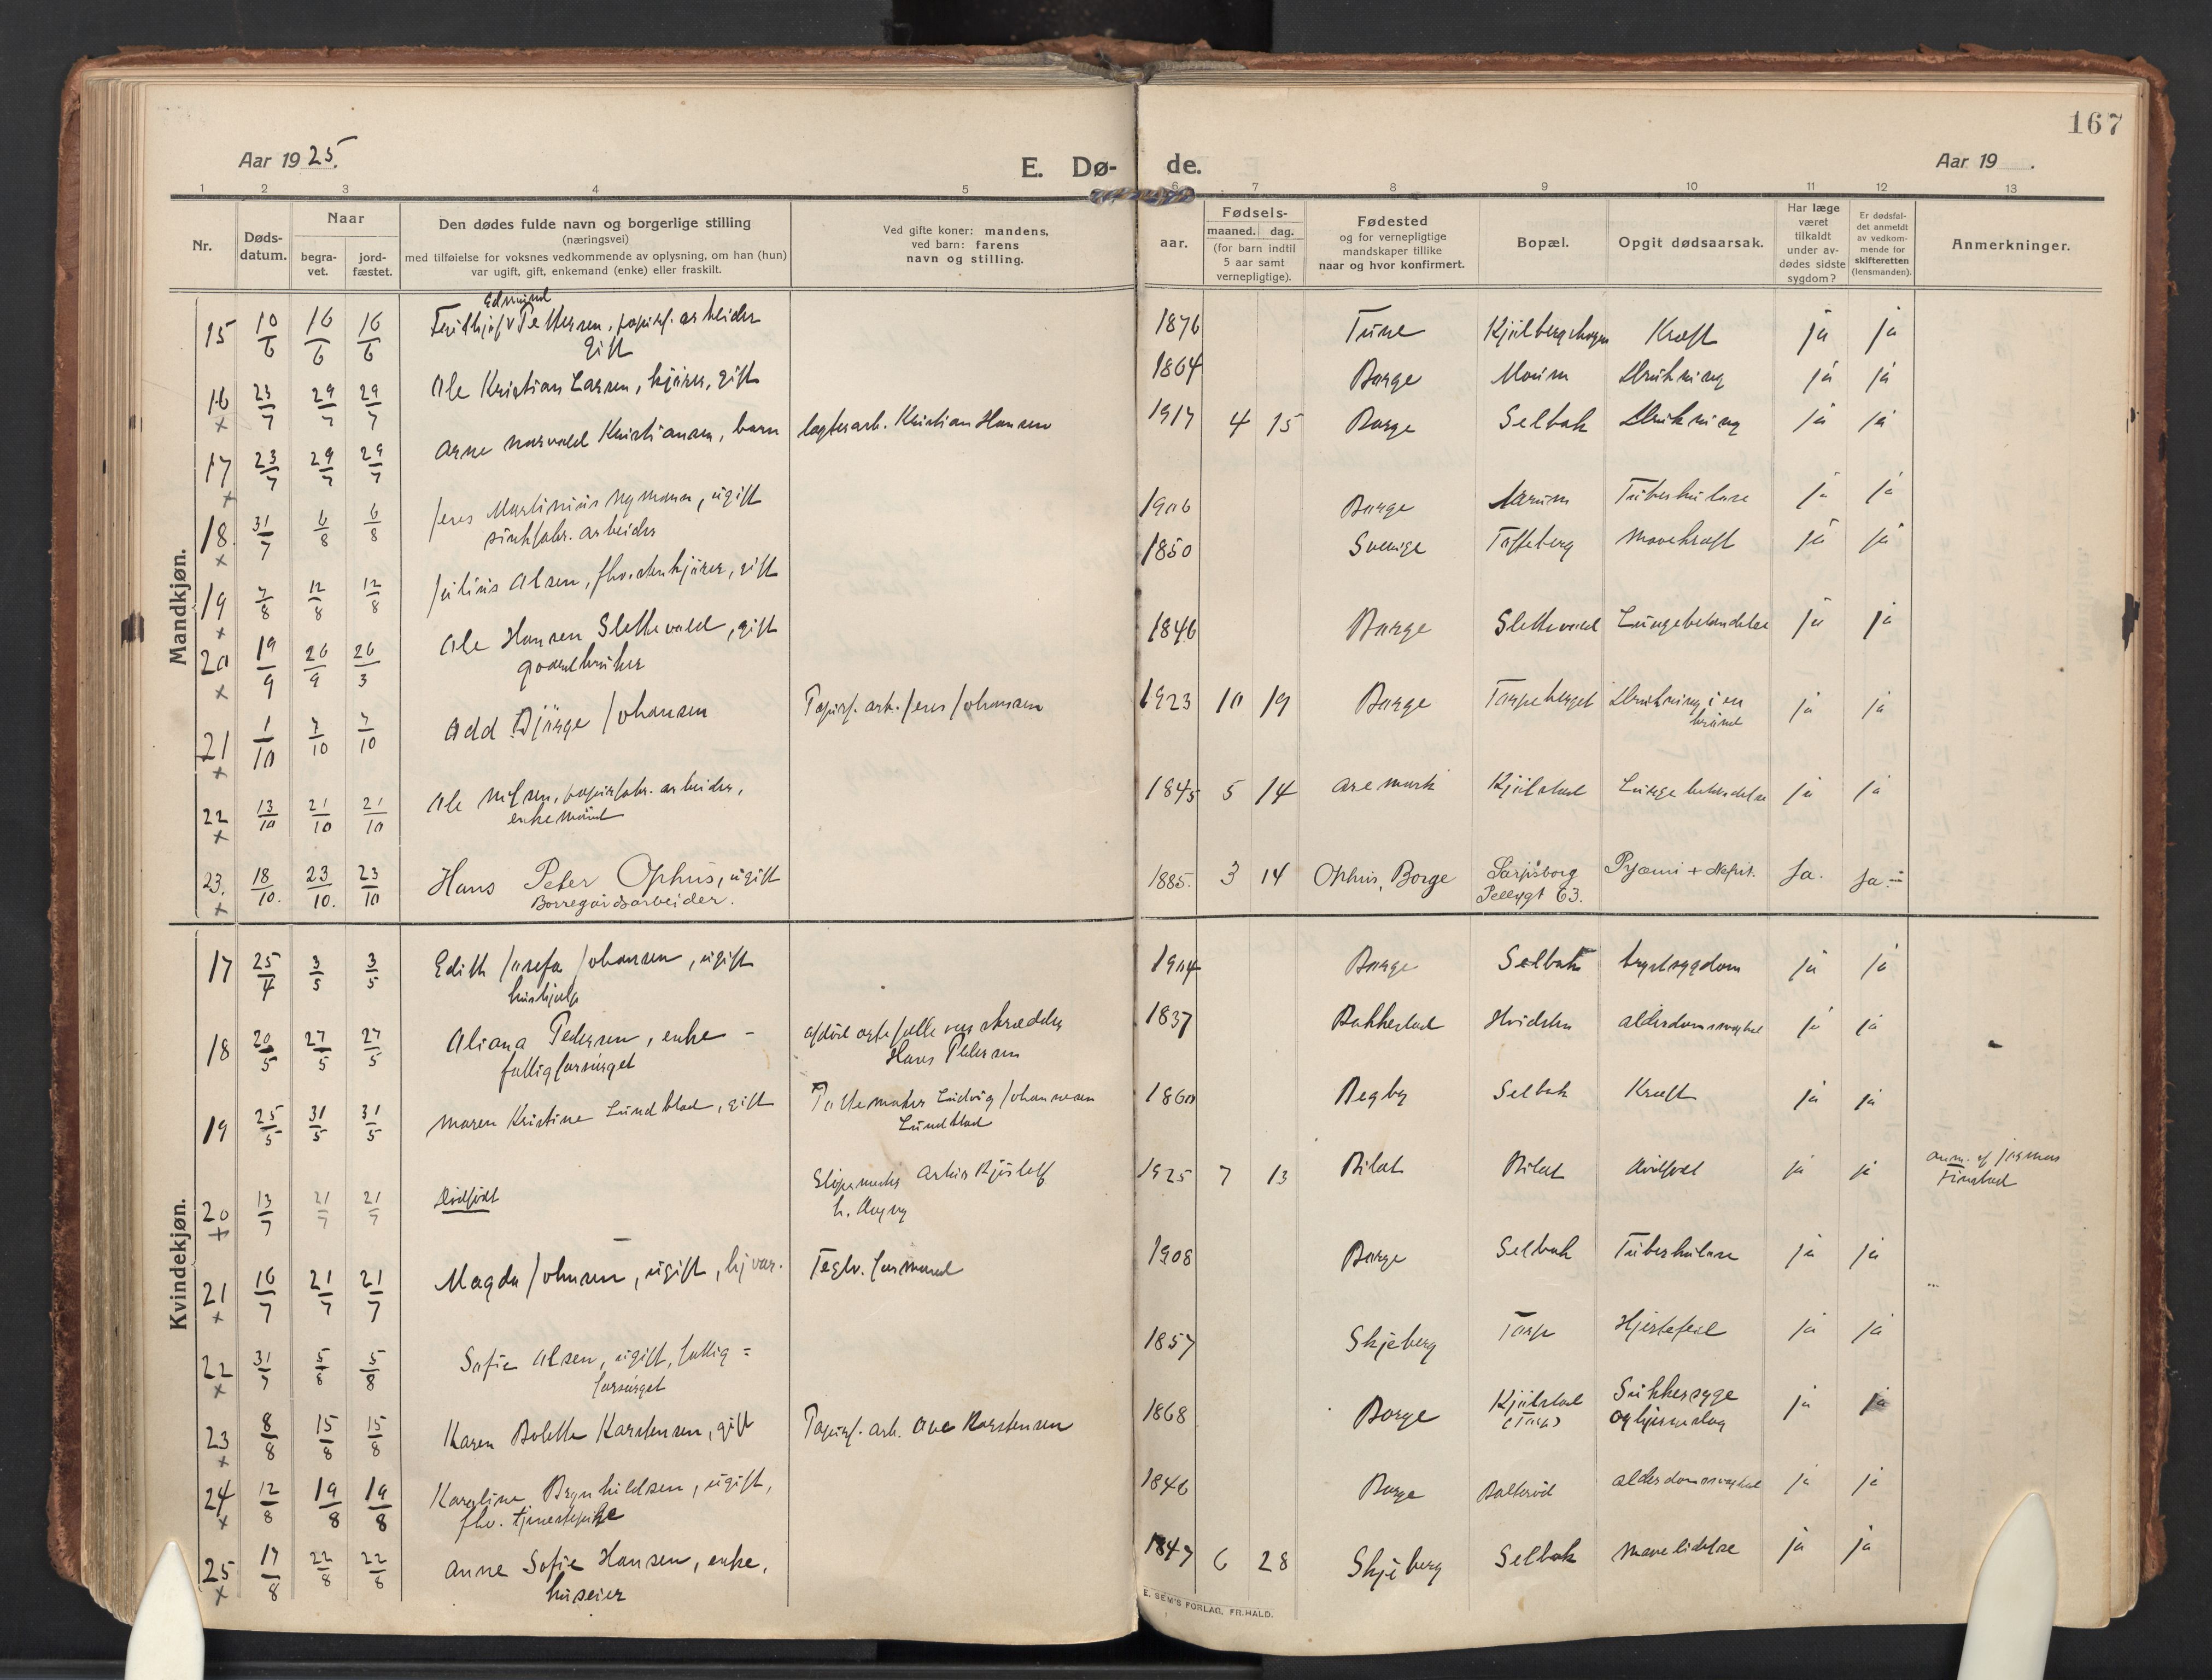 167
Aar 1925.
E. Dø-de.
Aar 19 .
1 2 3 4 5 6 7 8 9 10 11 12 13
Nr.
Døds-
datum.
Naar
begra-
vet.
jord-
fæstet.
Den dødes fulde navn og borgerlige stilling
(næringsvei)
med tilføielse for voksnes vedkommende av oplysning, om han (hun)
var ugift, gift, enkemand (enke) eller fraskilt.
Ved gifte koner: mandens,
ved barn: farens
navn og stilling.
aar.
Fødsels-
maaned. dag.
(for barn indtil
5 aar samt
vernepligtige).
Fødested
og for vernepligtige
mandskaper tillike
naar og hvor konfirmert.
Bopæl.
Opgit dødsaarsak.
Har læge
været
tilkaldt
under av-
dødes sidste
sygdom?
Er dødsfal-
det anmeldt
av vedkom-
mende for
skifteretten
(lensmanden).
Anmerkninger.
Mandkjøn.
Edmund
15 10/6 16/6 16/6 Frithjof Pettersen, papirf. arbeider 1876 Tune Kræft ja ja
gift
16 x 23/7 29/7 29/7 Ole Kristian Larsen, kjører, gift 1864 Borge Moum Drukning ja ja
17 x 23/7 29/7 29/7 Arne Norvald Kristiansen, barn Kristian Hansen 1917 4 15 Borge Selbak Drukning ja ja
18. x 31/7 6/8 6/8 Jens Martinius Nymann, ugift 1906 Borge Tuberkulose ja ja
sinkfabr. arbeider
19 x 7/8 12/8 12/8 Julius Olsen, fhv. stenkjører, gift 1850 Sverige Tofteberg Mavekræft ja ja
20 x 19/9 26/9 26/3 Ole Hansen Slettevold, gift 1846 Borge Slettevold Lungebetændelse ja ja
gaardbruker
21 x 1/10 7/10 7/10 Odd Bjørge Johansen Papirf. arb. Jens Johansen 1923 10 19 Borge Torpeberget Drukning i en ja ja
brønd
22 x 13/10 21/10 21/10 Ole Nilsen, papirfabr. arbeider, 1845 5 14 Aremark Kjølstad Lungebetændelse ja ja
enkemand
23. x 18/10. 23/10. 23/10 Hans Peter Ophus, ugift 1885. 3 14 Ophus, Borge Sarpsborg Pyæmi + Nefrit. Ja. Ja.
Borregårdsarbeider. Pellygt 63.
Kvindekjøn.
17 25/4 3/5 3/5 Edith Josefa Johansen, ugift 1904 Borge Selbak brystsygdom ja ja
hushjelp
18 20/5 27/5 27/5 Oliana Pedersen, enke - skrædder 1837 Bakkestad Hvidsten alderdomssvakhet ja ja
fattigforsørget Hans Pedersen
19 25/5 31/5 31/5 Maren Kristine Lundblad, gift Pottemaker Ludvig Johannesen 1860 Begby Selbak Kræft ja ja
Lundblad
20 + 13/7 21/7 21/7 Dødfødt 1925 7 13 Bilet Bilet dødfødt ja ja anm. af jormor
Finstad
21 x 16/7 21/7 21/7 Magda Johnsen, ugift, hjvær. Teglv. formand 1908 Borge Selbak Tuberkulose ja ja
22 x 31/7 5/8 5/8 Sofie Olsen, ugift, fattig = 1857 Skjeberg Torp Hjertefeil ja ja
forsørget
23 x 8/8 15/8 15/8 Karen Bolette Karstensen, gift Papirf. arb. Ole Karstensen 1868 Borge Kjølstad Sukkersyge ja ja
(Torp) og hjerneslag
24 x 12/8 19/8 19/8 Karoline Brynhildsen, ugift, 1846 Borge alderdomssvakhet ja ja
fhv. tjenestepike
25 x 17/8 22/8 22/8 Anne Sofie Hansen, enke, 1847 6 28 Skjeberg Selbak Mavelidelse ja ja
huseier
E. SEM'S FORLAG, FR.HALD.